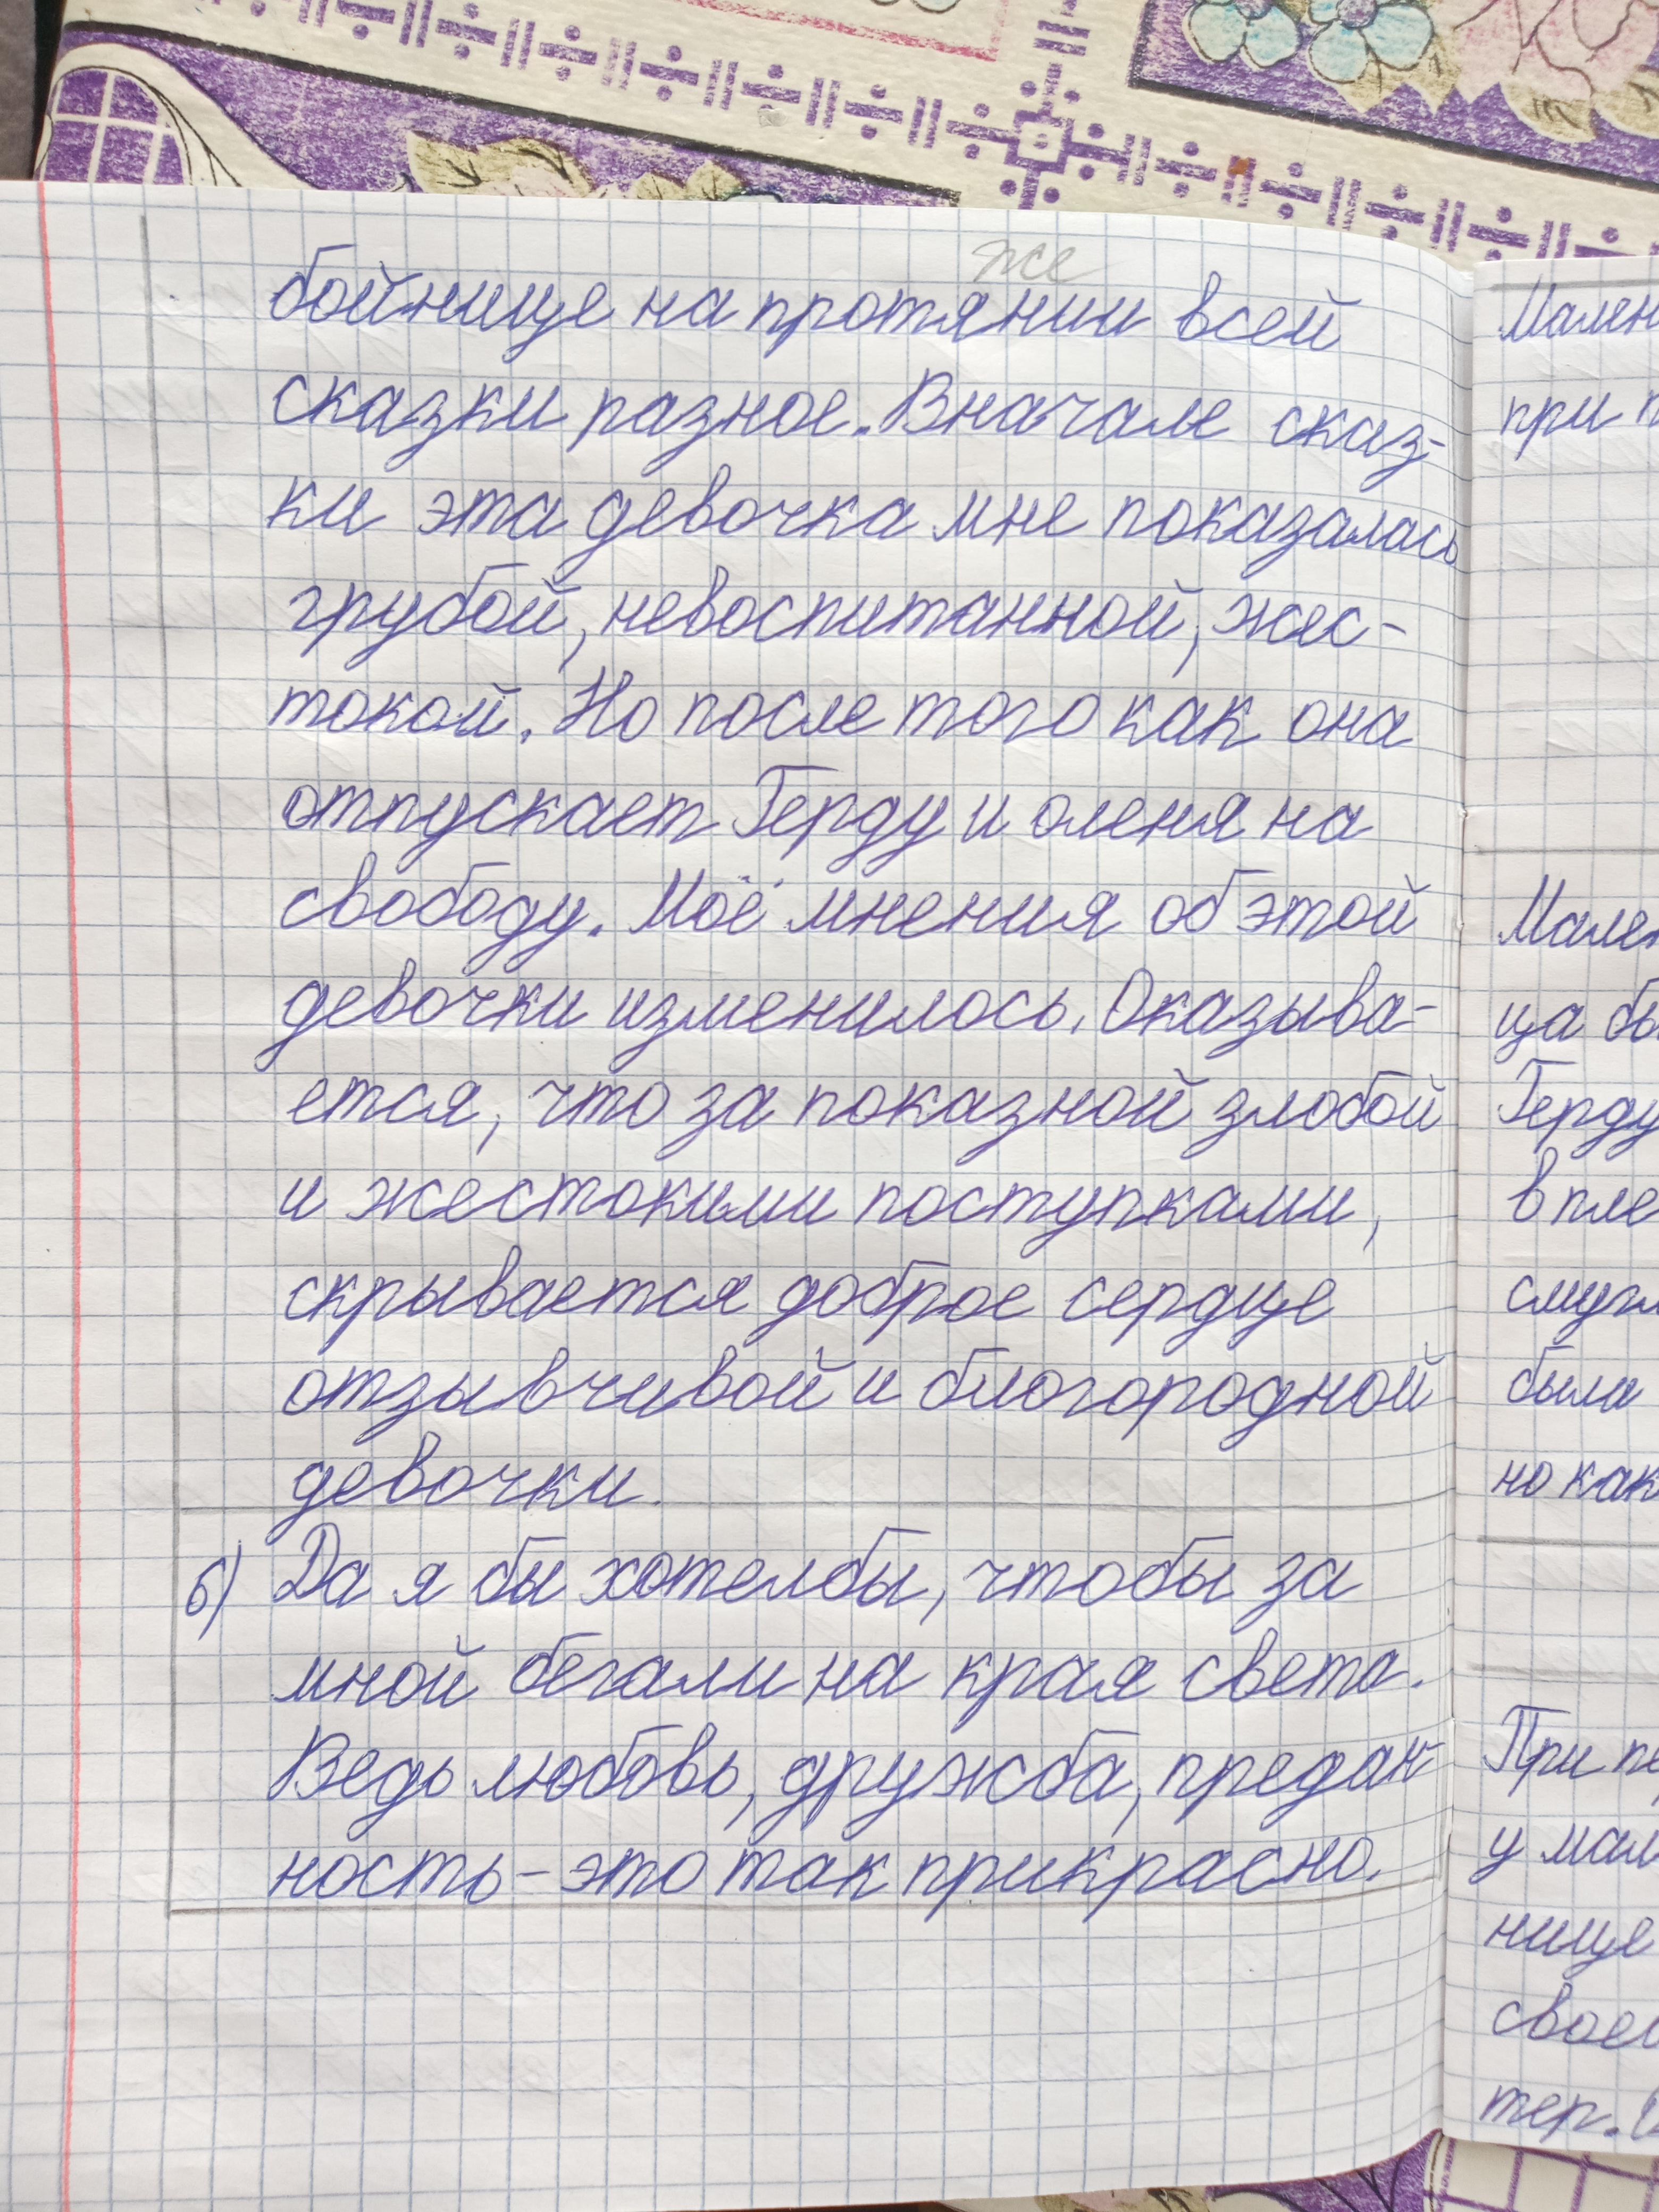 же
бойнице на протянии всей
сказки разное. Вначале сказ-
ки эта девочка мне показалась
грубой, невоспитанной, жес-
токой. Но после того как она
отпускает Герду и оленя на
свободу. Моё мнения об этой
девочки изменилось. Оказыва-
ется, что за показной злобой
и жестокими поступками,
скрывается доброе сердце
отзывчивой и благородной
девочки.
б) Да я бы хотелбы, чтобы за
мной бегали на края света.
Ведь любовь, дружба, предан-
ность - это так прикрасно.
при
ца
Герду
в
была
но как
При
у
нице
тер.